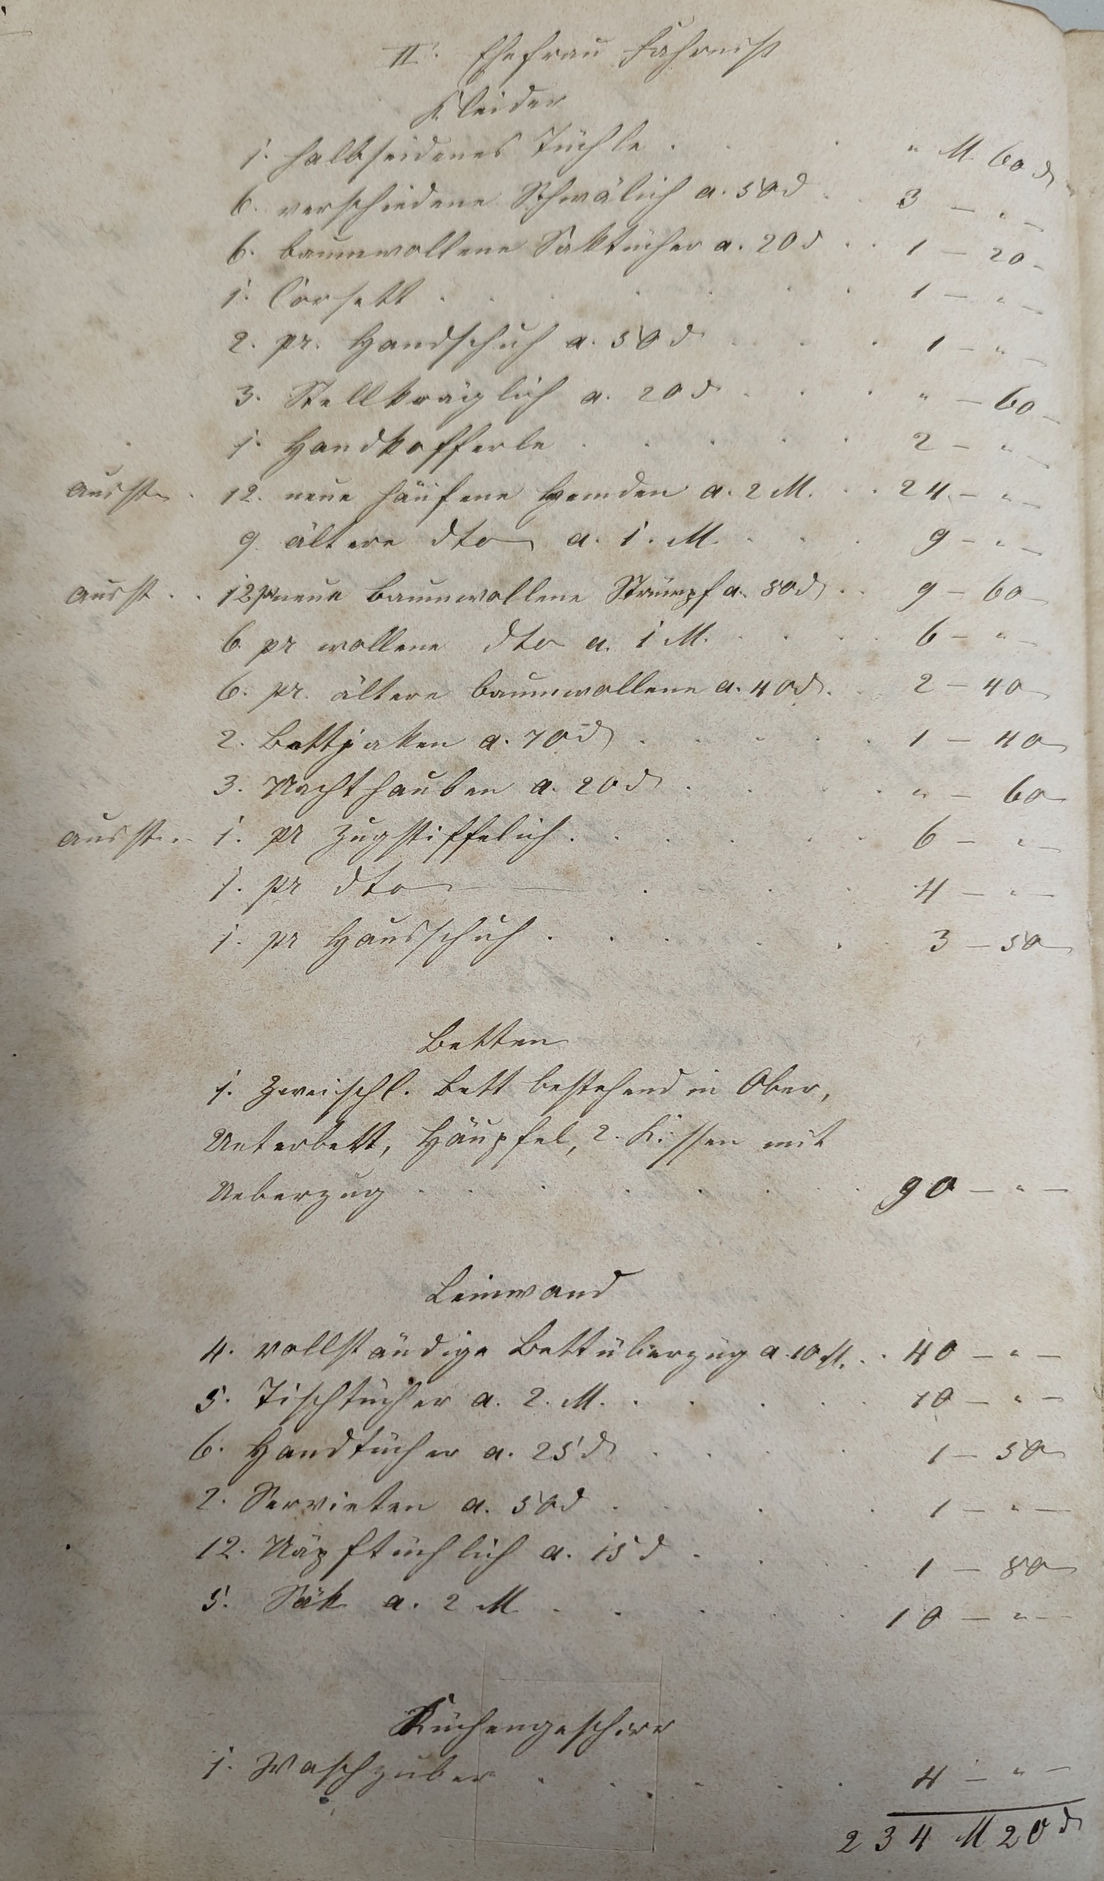 II. Ehefrau Fahrniß
Kleider
1. halbseidenes Tüchle . . " M. 60 ₰
6. verschiedene Schwälich a. 50 ₰ . . 3 – " –
6. baumwollene Saktücher a. 20 ₰ . . 1 – 20 –
1. Corsett . . . . . . 1 – " –
2. pr. Handschuh a. 50 ₰ . . . . 1 – " –
3. Stellkräglich a. 20 ₰ . . . " – 60 –
1. Handkofferle . . . . . . 2 – " –
Ausst. . 12. neue häufene Hemden a. 2 M. . . 24 – " –
9 ältere dto a. 1. M. . . . 9 – " –
Ausst . . 12 pr neue baumwollene Strümpf a. 80 ₰ . . 9 – 60
6. pr wollene dto a. 1 M. . . . 6 – " –
6. pr. ältere baumwollene a. 40 ₰ . 2 – 40
2. Bettjaken a. 70 ₰ . . . . . 1 – 40
3. Nachthauben a. 20 ₰ . . . . " – 60
Ausst. . 1. pr Zugstiffelich . . . . . 6 – " –
1. pr dto — . . . 4 – " –
1. pr Hausschuh . . . . . 3 – 50
Betten
1. Zweischl. Bett bestehend in Ober,
Unterbett, Häupfel, 2. Kissen mit
Ueberzug . . . . . . . 90 – " –
Leinwand
4. vollständige Bettüberzüg a. 10 M. . . 40 – " –
5. Tischtücher a. 2. M. . . . . . 10 – " –
6. Handtücher a. 25 ₰ . . . 1 – 50
2. Servieten a. 50 ₰ . . . 1 – " –
12. Näpftüchlich a. 15 ₰ . . . . 1 – 80
5. Säk a. 2 M . . . . . 10 – " –
Küchengeschirr
1. Waschzuber . . . . . . 4 – " –
234 M 20 ₰